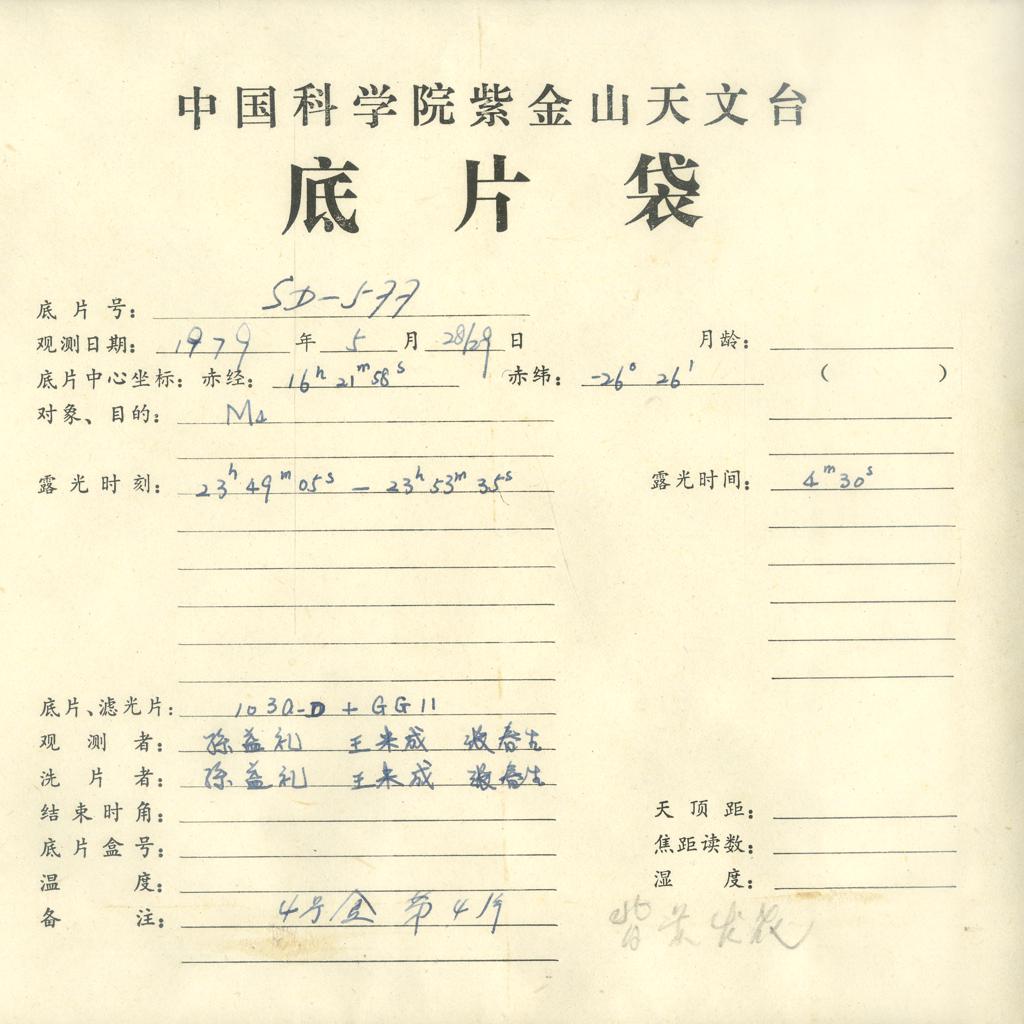 中国科学院紫金山天文台
底片袋
底片号: SD-577
观测日期: 1979年5月28/29日 月龄:
底片中心坐标: 赤经: 16h 21m 58s 赤纬: -26° 26′ ( )
对象、目的: M4
露光时刻: 23h 49m 05s — 23h 53m 35s 露光时间: 4m 30s
底片、滤光片: 103a-D + GG11
观测者: 孙益礼 王来成 张春生
洗片者: 孙益礼 王来成 张春生
结束时角: 天顶距:
底片盒号: 焦距读数:
温度: 湿度:
备注: 4号盒 第4片